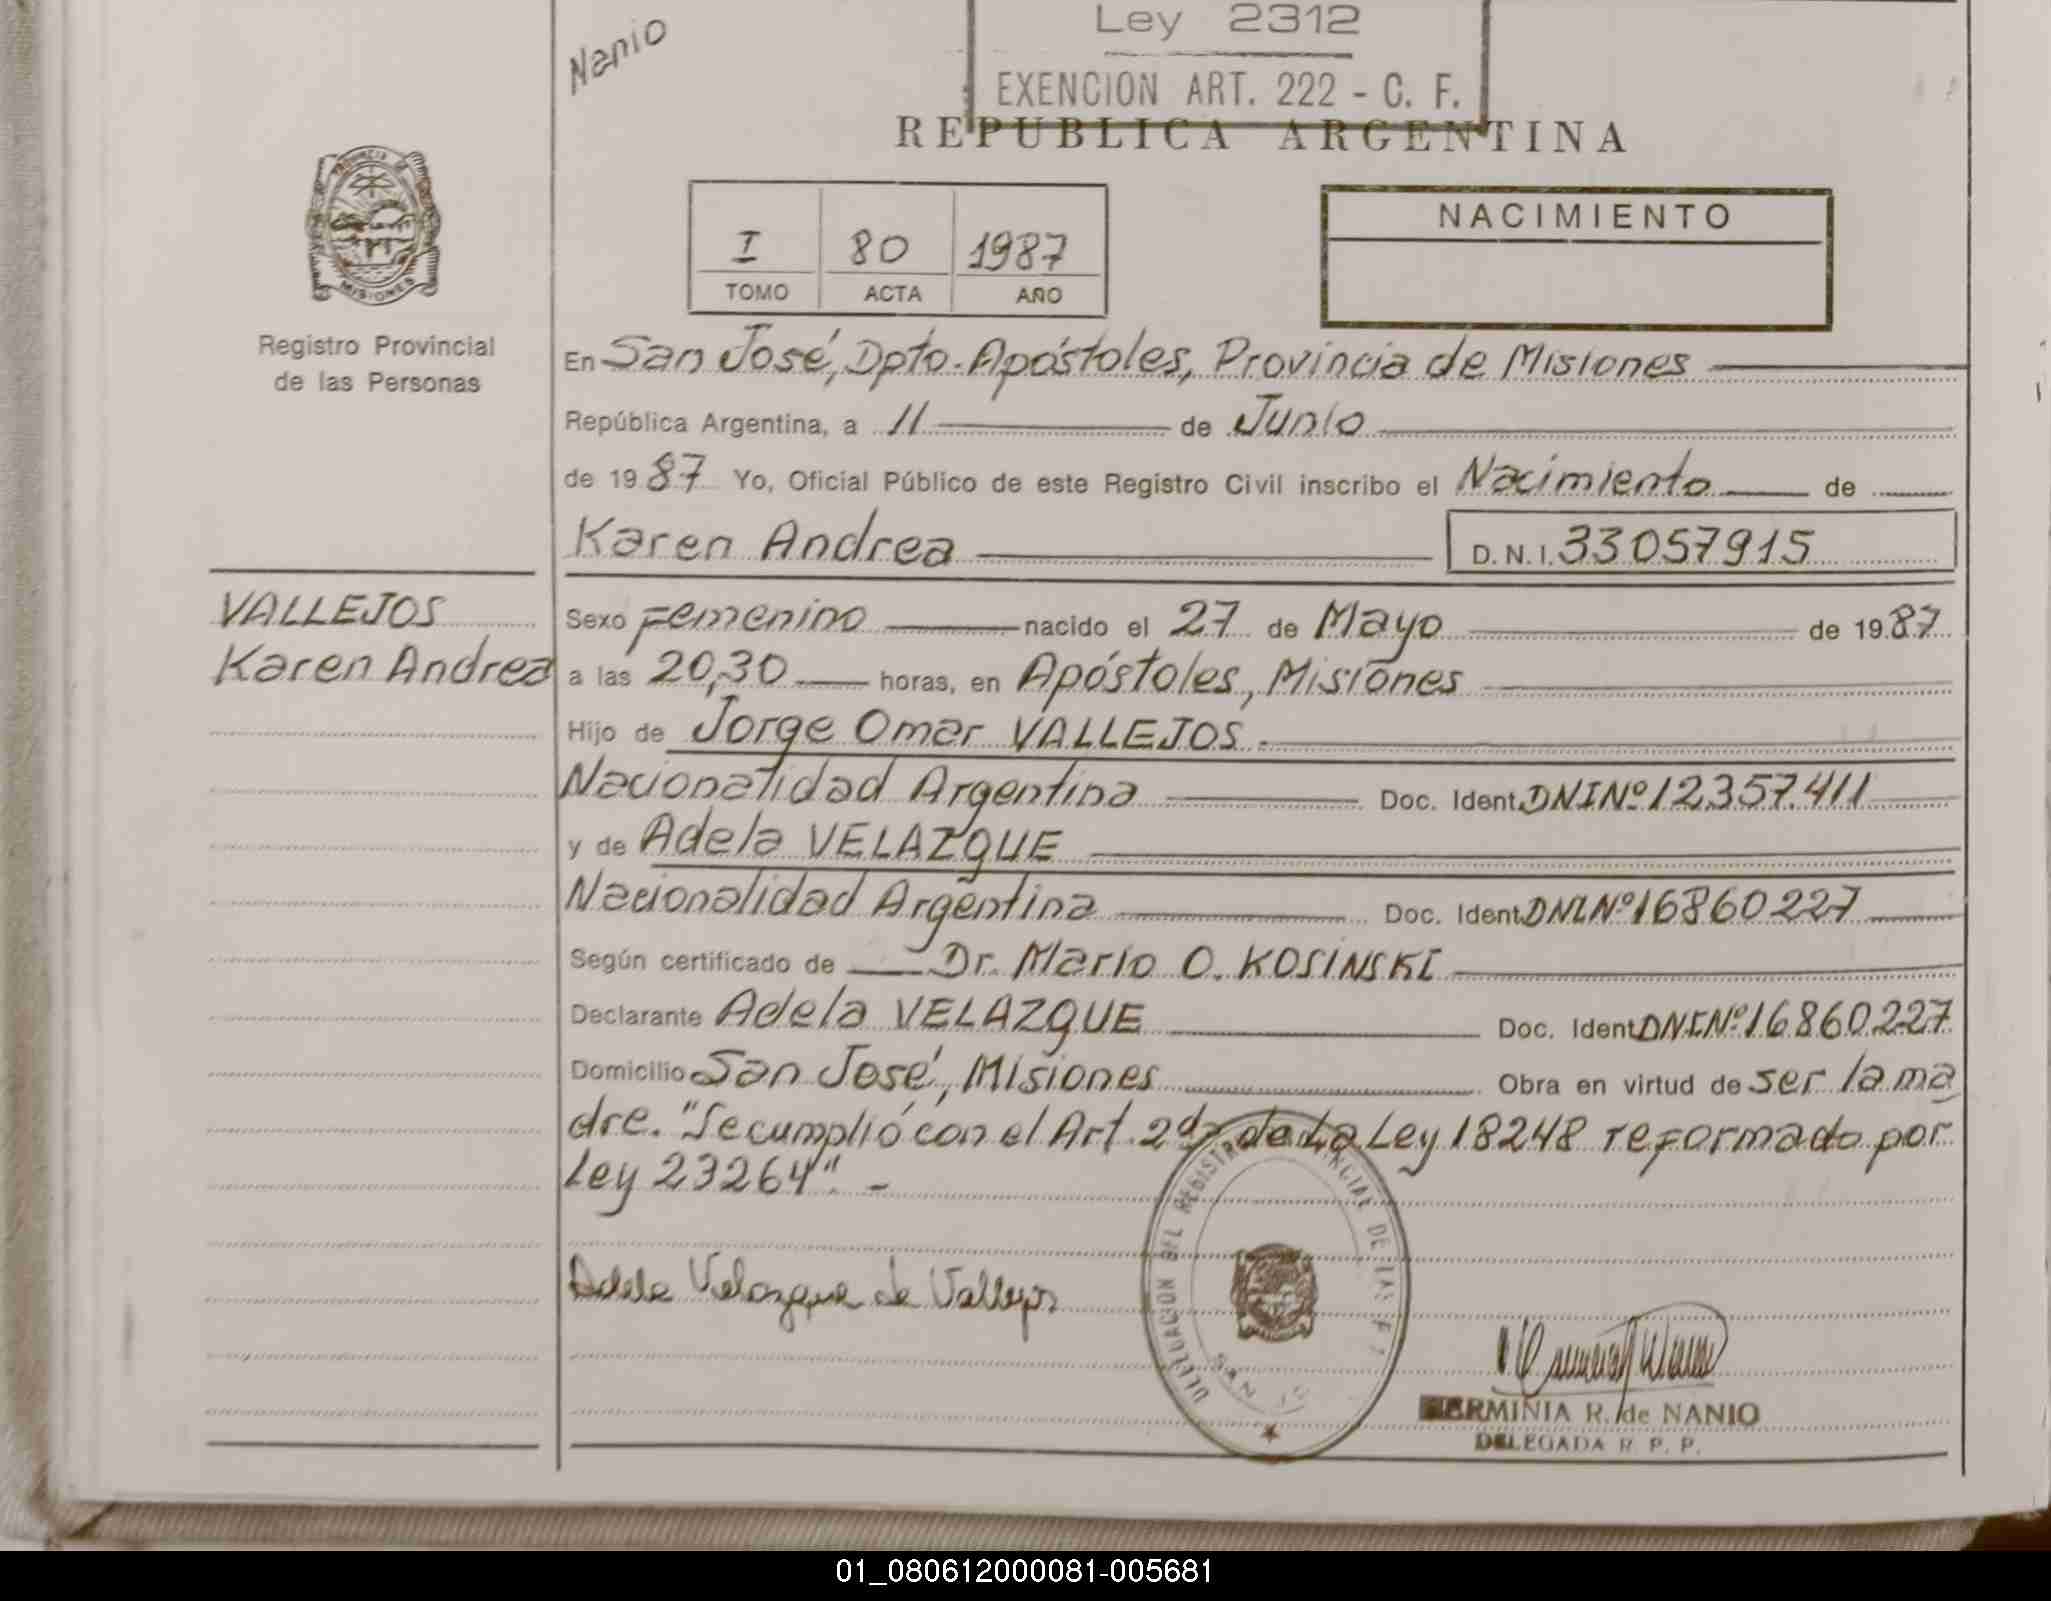 Nanio
Ley 2312
EXENCION ART. 222 - C. F.
REPUBLICA ARGENTINA
PROVINCIA DE
MISIONES
I 80 1987
TOMO ACTA AÑO
NACIMIENTO
Registro Provincial
de las Personas
En San José, Dpto. Apóstoles, Provincia de Misiones
República Argentina, a 11 de Junio
de 1987 Yo, Oficial Público de este Registro Civil inscribo el Nacimiento de
Karen Andrea D.N.I. 33057915
VALLEJOS
Karen Andrea
Sexo Femenino nacido el 27 de Mayo de 1987
a las 20,30 horas, en Apóstoles, Misiones
Hijo de Jorge Omar VALLEJOS
Nacionalidad Argentina Doc. Ident. DNI Nº 12.357.411
y de Adela VELAZQUE
Nacionalidad Argentina Doc. Ident. DNI. Nº 16860227
Según certificado de Dr. Mario O. KOSINSKI
Declarante Adela VELAZQUE Doc. Ident. DNI. Nº 16860227
Domicilio San José, Misiones Obra en virtud de ser la ma
dre. "Se cumplió con el Art. 2do de La Ley 18248 reformado por
Ley 23264". -
Adela Velazque de Vallejos
DELEGACION DEL REGISTRO PROVINCIAL DE LAS P.
SAN
HERMINIA R. de NANIO
DELEGADA R. P. P.
01_080612000081-005681